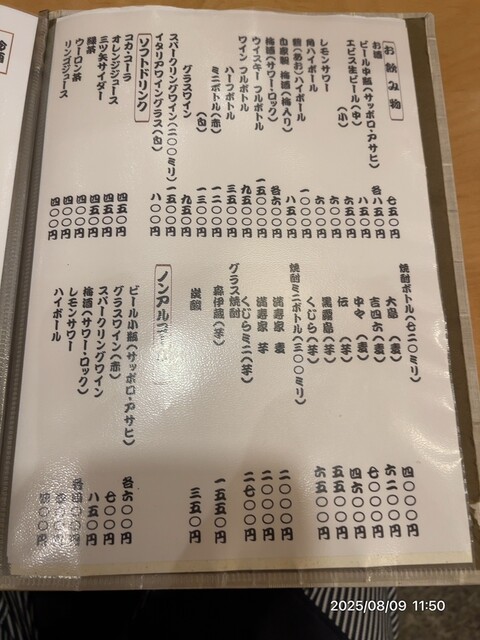 お飲み物
お酒 七五〇円
ビール中瓶(サッポロ・アサヒ) 各八五〇円
エビス生ビール(中) 八五〇円
(小) 六五〇円
レモンサワー 六〇〇円
角ハイボール 六〇〇円
碧(あお)ハイボール 一〇〇〇円
自家製 梅酒(梅入り) 八五〇円
梅酒(サワー・ロック) 各六〇〇円
ウイスキー フルボトル 一五〇〇〇円
ワイン フルボトル 九五〇〇円
ハーフボトル 三五〇〇円
ミニボトル(赤) 一二〇〇円
(白) 一三〇〇円
グラスワイン 九五〇円
スパークリングワイン(二〇〇ミリ) 一五〇〇円
イタリアワイングラス(白) 八〇〇円
ソフトドリンク
コカ・コーラ 四五〇円
オレンジジュース 四五〇円
三ツ矢サイダー 四五〇円
緑茶 四〇〇円
ウーロン茶 四〇〇円
リンゴジュース 四〇〇円
焼酎ボトル(七二〇ミリ)
大島(麦) 四〇〇〇円
吉四六(麦) 六二〇〇円
中々(麦) 七〇〇〇円
伝(芋) 四六〇〇円
黒霧島(芋) 五五〇〇円
くじら(芋) 六五〇〇円
焼酎ミニボトル(三〇〇ミリ)
満寿家 麦 二〇〇〇円
満寿家 芋 二〇〇〇円
くじらミニ(芋) 二七〇〇円
グラス焼酎
森伊蔵(芋) 一五五〇円
炭酸 三五〇円
ノンアルコール
ビール小瓶(サッポロ・アサヒ) 各六〇〇円
グラスワイン(赤) 七〇〇円
スパークリングワイン 八五〇円
梅酒(サワー・ロック)
レモンサワー
ハイボール
2025/08/09 11:50